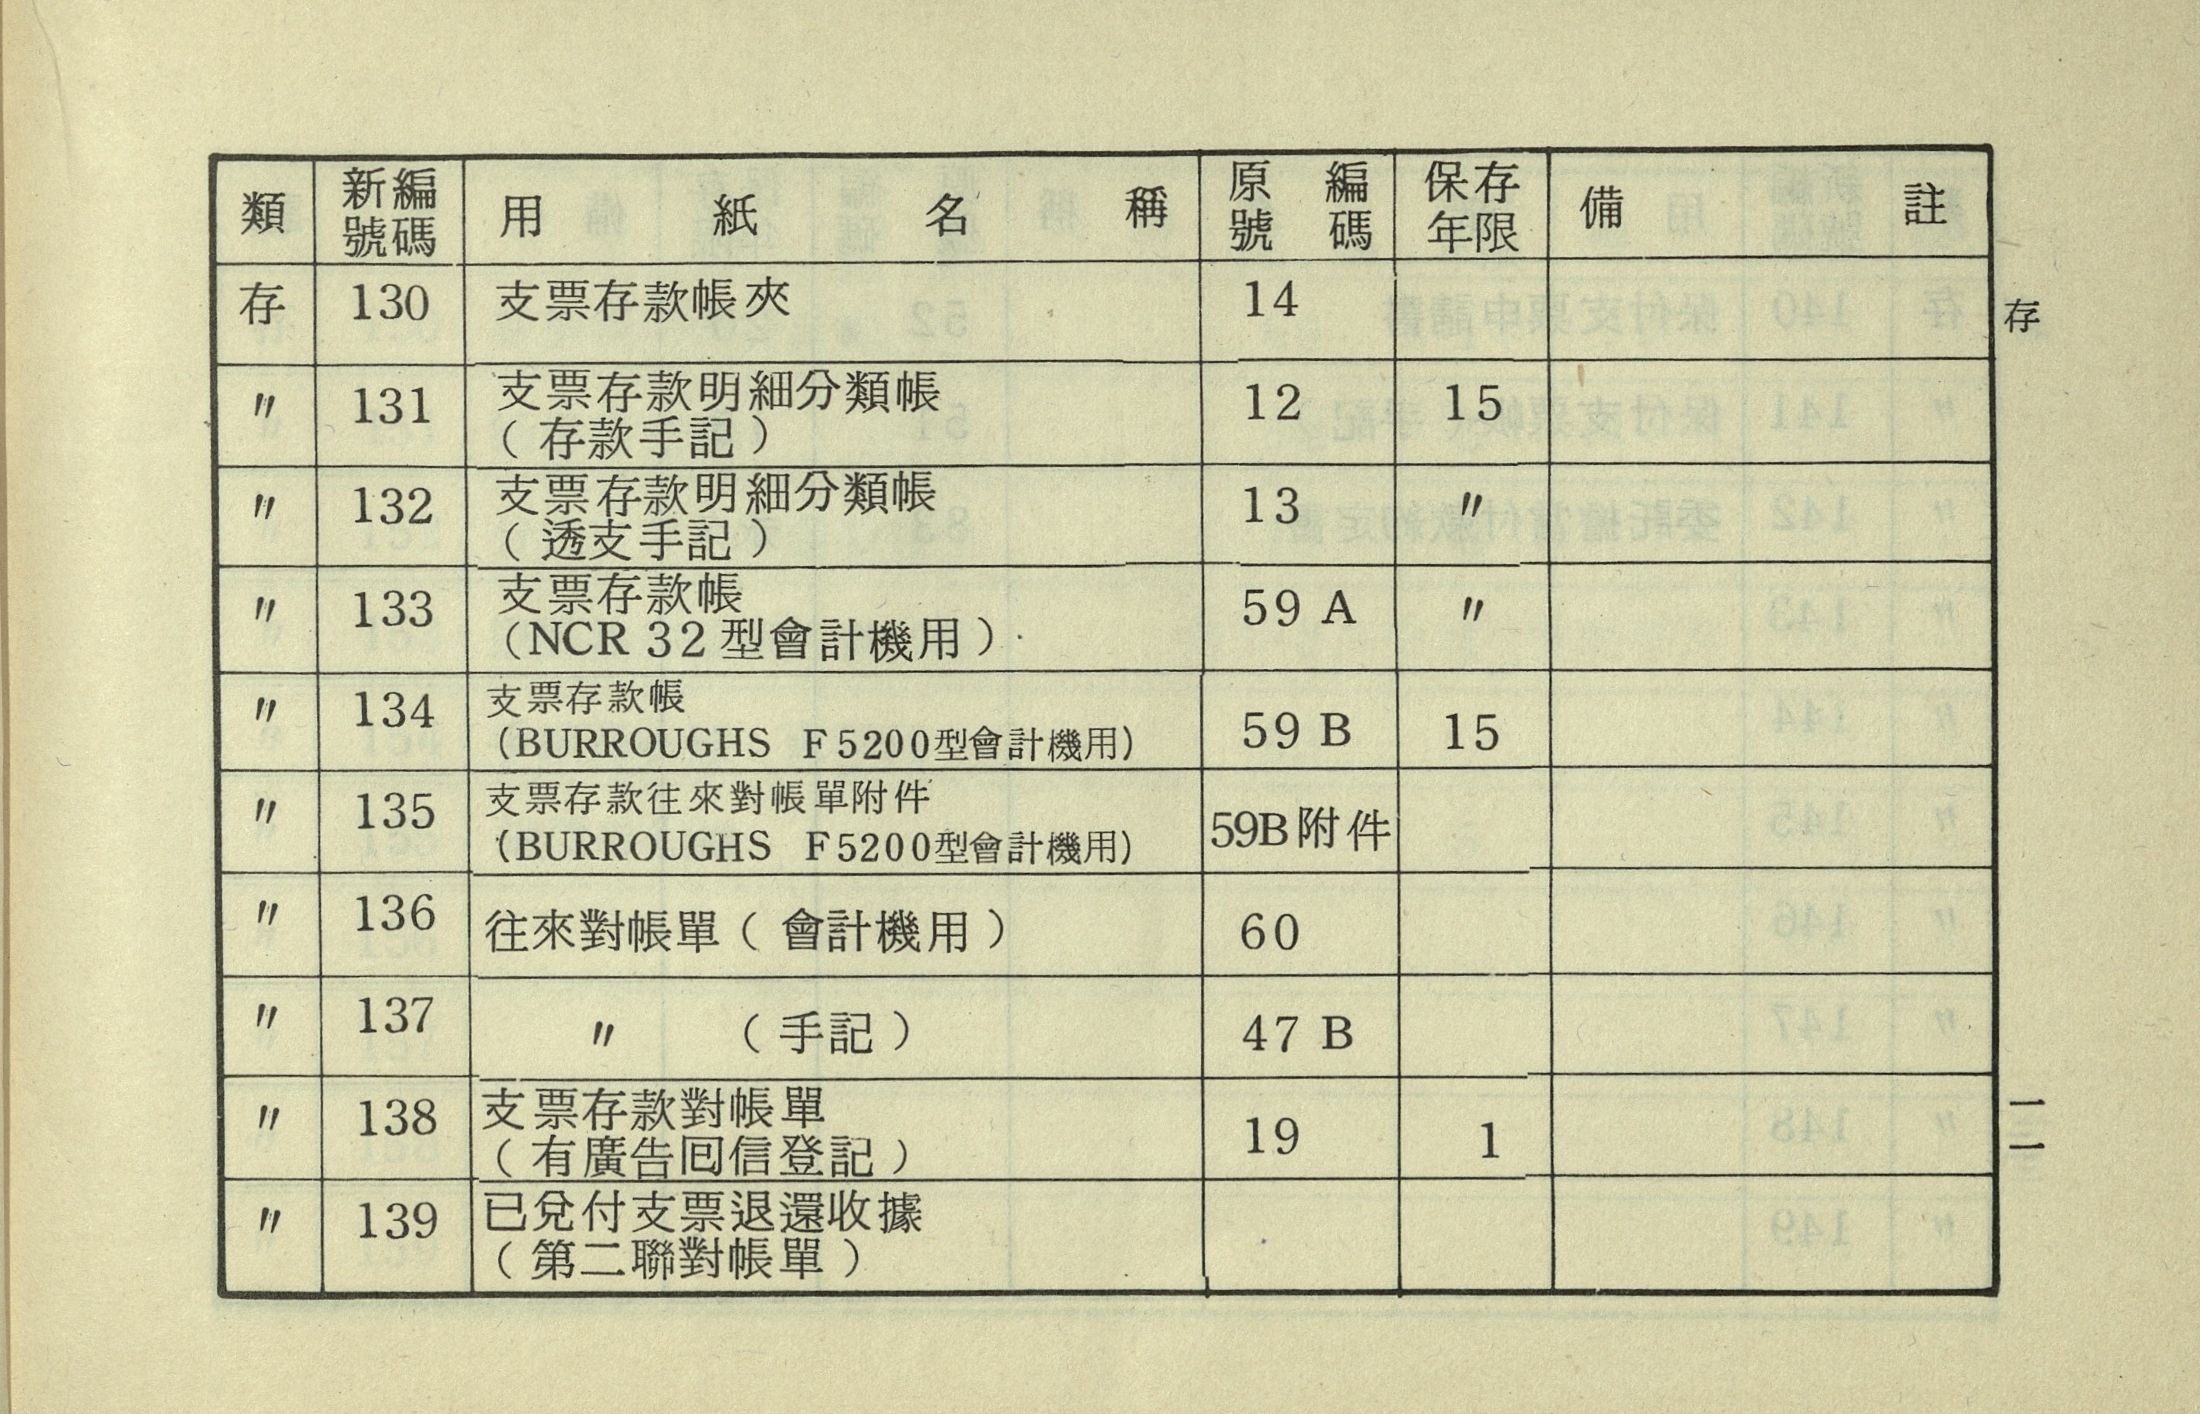 類 新編號碼 用紙名稱 原編號碼 保存年限 備註
存 130 支票存款帳夾 14
〃 131 支票存款明細分類帳 12 15
(存款手記)
〃 132 支票存款明細分類帳 13 〃
(透支手記)
〃 133 支票存款帳 59 A 〃
(NCR 32型會計機用)
〃 134 支票存款帳 59 B 15
(BURROUGHS F5200型會計機用)
〃 135 支票存款往來對帳單附件 59B附件
(BURROUGHS F5200型會計機用)
〃 136 往來對帳單(會計機用) 60
〃 137 〃 (手記) 47 B
〃 138 支票存款對帳單 19 1
(有廣告囘信登記)
〃 139 已兌付支票退還收據
(第二聯對帳單)
存
一一